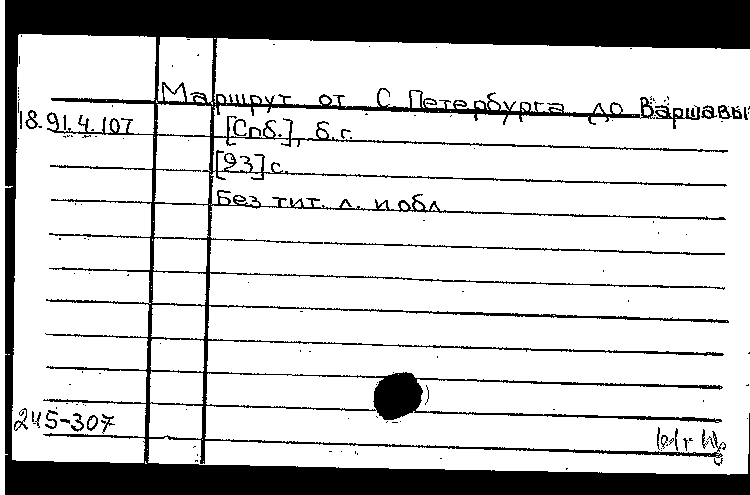 Маршрут от С. Петербурга до Варшавы
18.91.4.107 [Спб.], б.г.
[23] с.
Без тит. л. и обл.
245-307